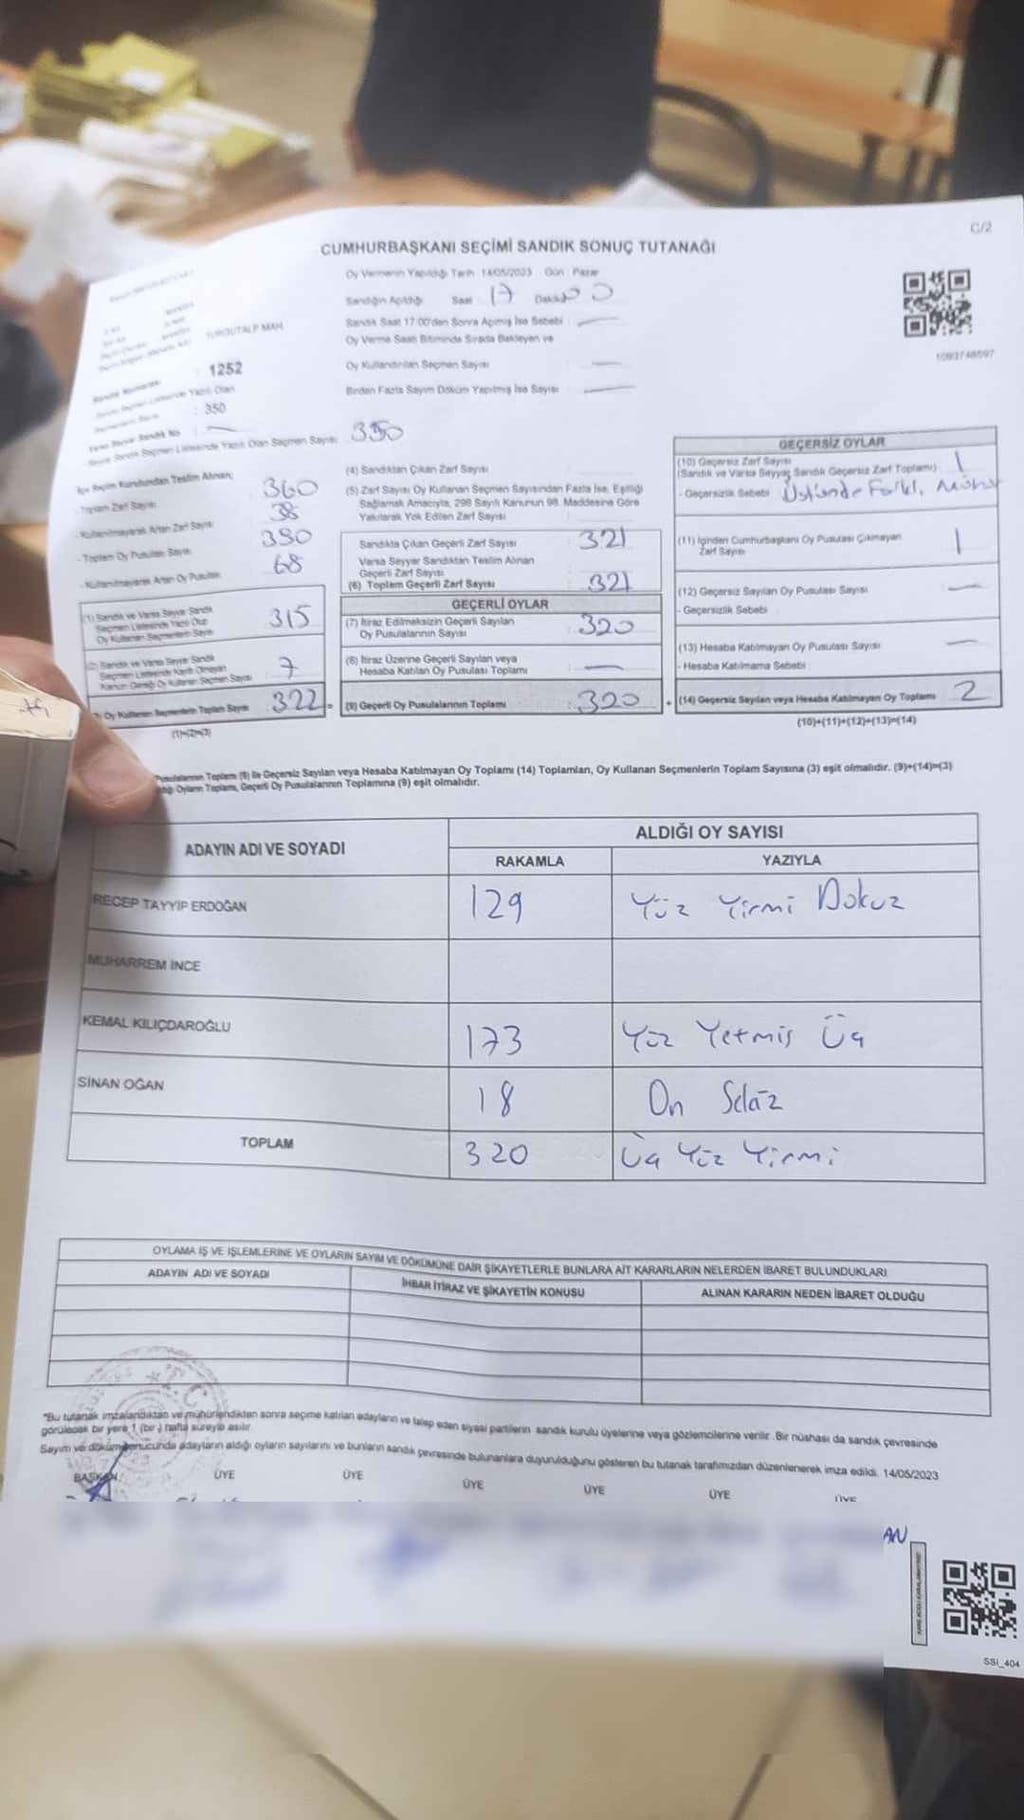 C/2
CUMHURBAŞKANI SEÇİMİ SANDIK SONUÇ TUTANAĞI
Oy Vermenin Yapıldığı Tarih 14/05/2023 Gün : Pazar
Sandığın Açıldığı Saat 17 Dakika 00
Sandık Saat 17:00'den Sonra Açılmış İse Sebebi
Oy Verme Saati Bitiminde Sırada Bekleyen ve
Oy Kullandırılan Seçmen Sayısı
Birden Fazla Sayım Döküm Yapılmış İse Sayısı
TURGUTALP MAH
1252
350
Olan Seçmen Sayısı 350
Teslim Alınan;
Toplam Zarf Sayısı 360
- Kullanılmayarak Artan Zarf Sayısı 38
- Toplam Oy Pusulası Sayısı 390
- Kullanılmayarak Artan Oy Pusulası 68
(1) Sandık ve Varsa Seyyar Sandık
Seçmen Listesinde Yazılı Olup
Oy Kullanan Seçmenlerin Sayısı 315
(2) Sandık ve Varsa Seyyar Sandık
Seçmen Listesinde Kayıtlı Olmayan
Kanun Gereği Oy Kullanan Seçmen Sayısı 7
Oy Kullanan Seçmenlerin Toplam Sayısı 322
(1)+(2)=(3)
(4) Sandıktan Çıkan Zarf Sayısı
(5) Zarf Sayısı Oy Kullanan Seçmen Sayısından Fazla İse, Eşitliği
Sağlamak Amacıyla, 298 Sayılı Kanunun 98. Maddesine Göre
Yakılarak Yok Edilen Zarf Sayısı
Sandıkta Çıkan Geçerli Zarf Sayısı 321
Varsa Seyyar Sandıktan Teslim Alınan
Geçerli Zarf Sayısı
(6) Toplam Geçerli Zarf Sayısı 321
GEÇERLİ OYLAR
(7) İtiraz Edilmeksizin Geçerli Sayılan
Oy Pusulalarının Sayısı 320
(8) İtiraz Üzerine Geçerli Sayılan veya
Hesaba Katılan Oy Pusulası Toplamı
(9) Geçerli Oy Pusulalarının Toplamı 320
GEÇERSİZ OYLAR
(10) Geçersiz Zarf Sayısı
(Sandık ve Varsa Seyyar Sandık Geçersiz Zarf Toplamı) 1
- Geçersizlik Sebebi Üstünde Farklı Mühür
(11) İçinden Cumhurbaşkanı Oy Pusulası Çıkmayan
Zarf Sayısı 1
(12) Geçersiz Sayılan Oy Pusulası Sayısı
- Geçersizlik Sebebi
(13) Hesaba Katılmayan Oy Pusulası Sayısı
- Hesaba Katılmama Sebebi
(14) Geçersiz Sayılan veya Hesaba Katılmayan Oy Toplamı 2
(10)+(11)+(12)+(13)=(14)
Toplamı (9) ile Geçersiz Sayılan veya Hesaba Katılmayan Oy Toplamı (14) Toplamları, Oy Kullanan Seçmenlerin Toplam Sayısına (3) eşit olmalıdır. (9)+(14)=(3)
Oyların Toplamı, Geçerli Oy Pusulalarının Toplamına (9) eşit olmalıdır.
ADAYIN ADI VE SOYADI
ALDIĞI OY SAYISI
RAKAMLA YAZIYLA
RECEP TAYYİP ERDOĞAN 129 Yüz Yirmi Dokuz
MUHARREM İNCE
KEMAL KILIÇDAROĞLU 173 Yüz Yetmiş Üç
SİNAN OĞAN 18 On Sekiz
TOPLAM 320 Üç Yüz Yirmi
OYLAMA İŞ VE İŞLEMLERİNE VE OYLARIN SAYIM VE DÖKÜMÜNE DAİR ŞİKAYETLERLE BUNLARA AİT KARARLARIN NELERDEN İBARET BULUNDUKLARI
ADAYIN ADI VE SOYADI İHBAR İTİRAZ VE ŞİKAYETİN KONUSU ALINAN KARARIN NEDEN İBARET OLDUĞU
T.C
*Bu tutanak imzalandıktan ve mühürlendikten sonra seçime katılan adayların ve talep eden siyasi partilerin sandık kurulu üyelerine veya gözlemcilerine verilir. Bir nüshası da sandık çevresinde
görülecek bir yere 1 (bir) hafta süreyle asılır.
Sayım ve döküm sonucunda adayların aldığı oyların sayılarını ve bunların sandık çevresinde bulunanlara duyurulduğunu gösteren bu tutanak tarafımızdan düzenlenerek imza edildi. 14/05/2023
BAŞKAN ÜYE ÜYE ÜYE ÜYE ÜYE ÜYE
AN
SSI_404